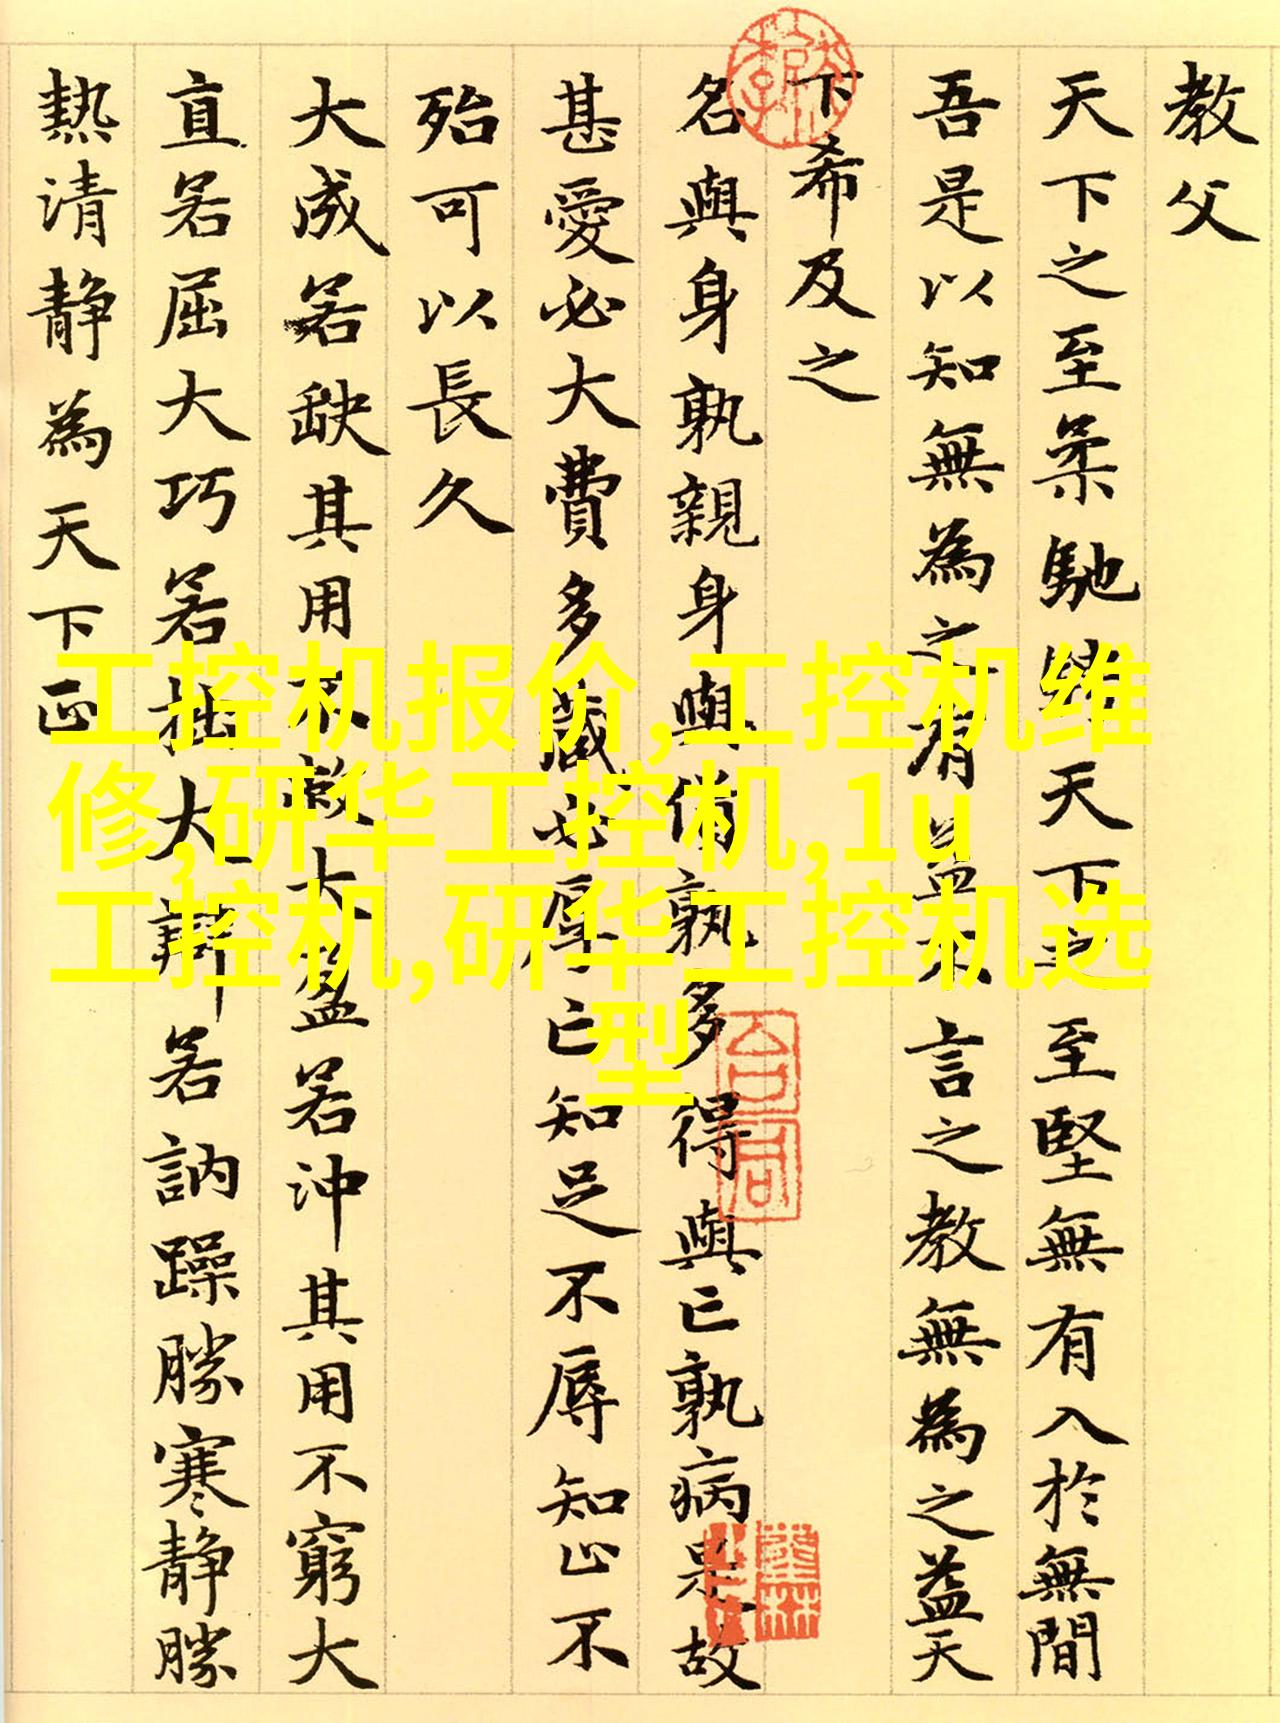 教父
天下之至柔馳騁天下之至堅無有入於無間
吾是以知無為之有益不言之教無為之益天
下希及之
名與身孰親身與貨孰多得與亡孰病是故
甚愛必大費多藏必厚亡知足不辱知止不
殆可以長久
大成若缺其用不敝大盈若沖其用不窮大
直若屈大巧若拙大辯若訥躁勝寒靜勝
熱清靜為天下正
工控机报价,工控机维
修,研华工控机,1u
工控机,研华工控机选
型